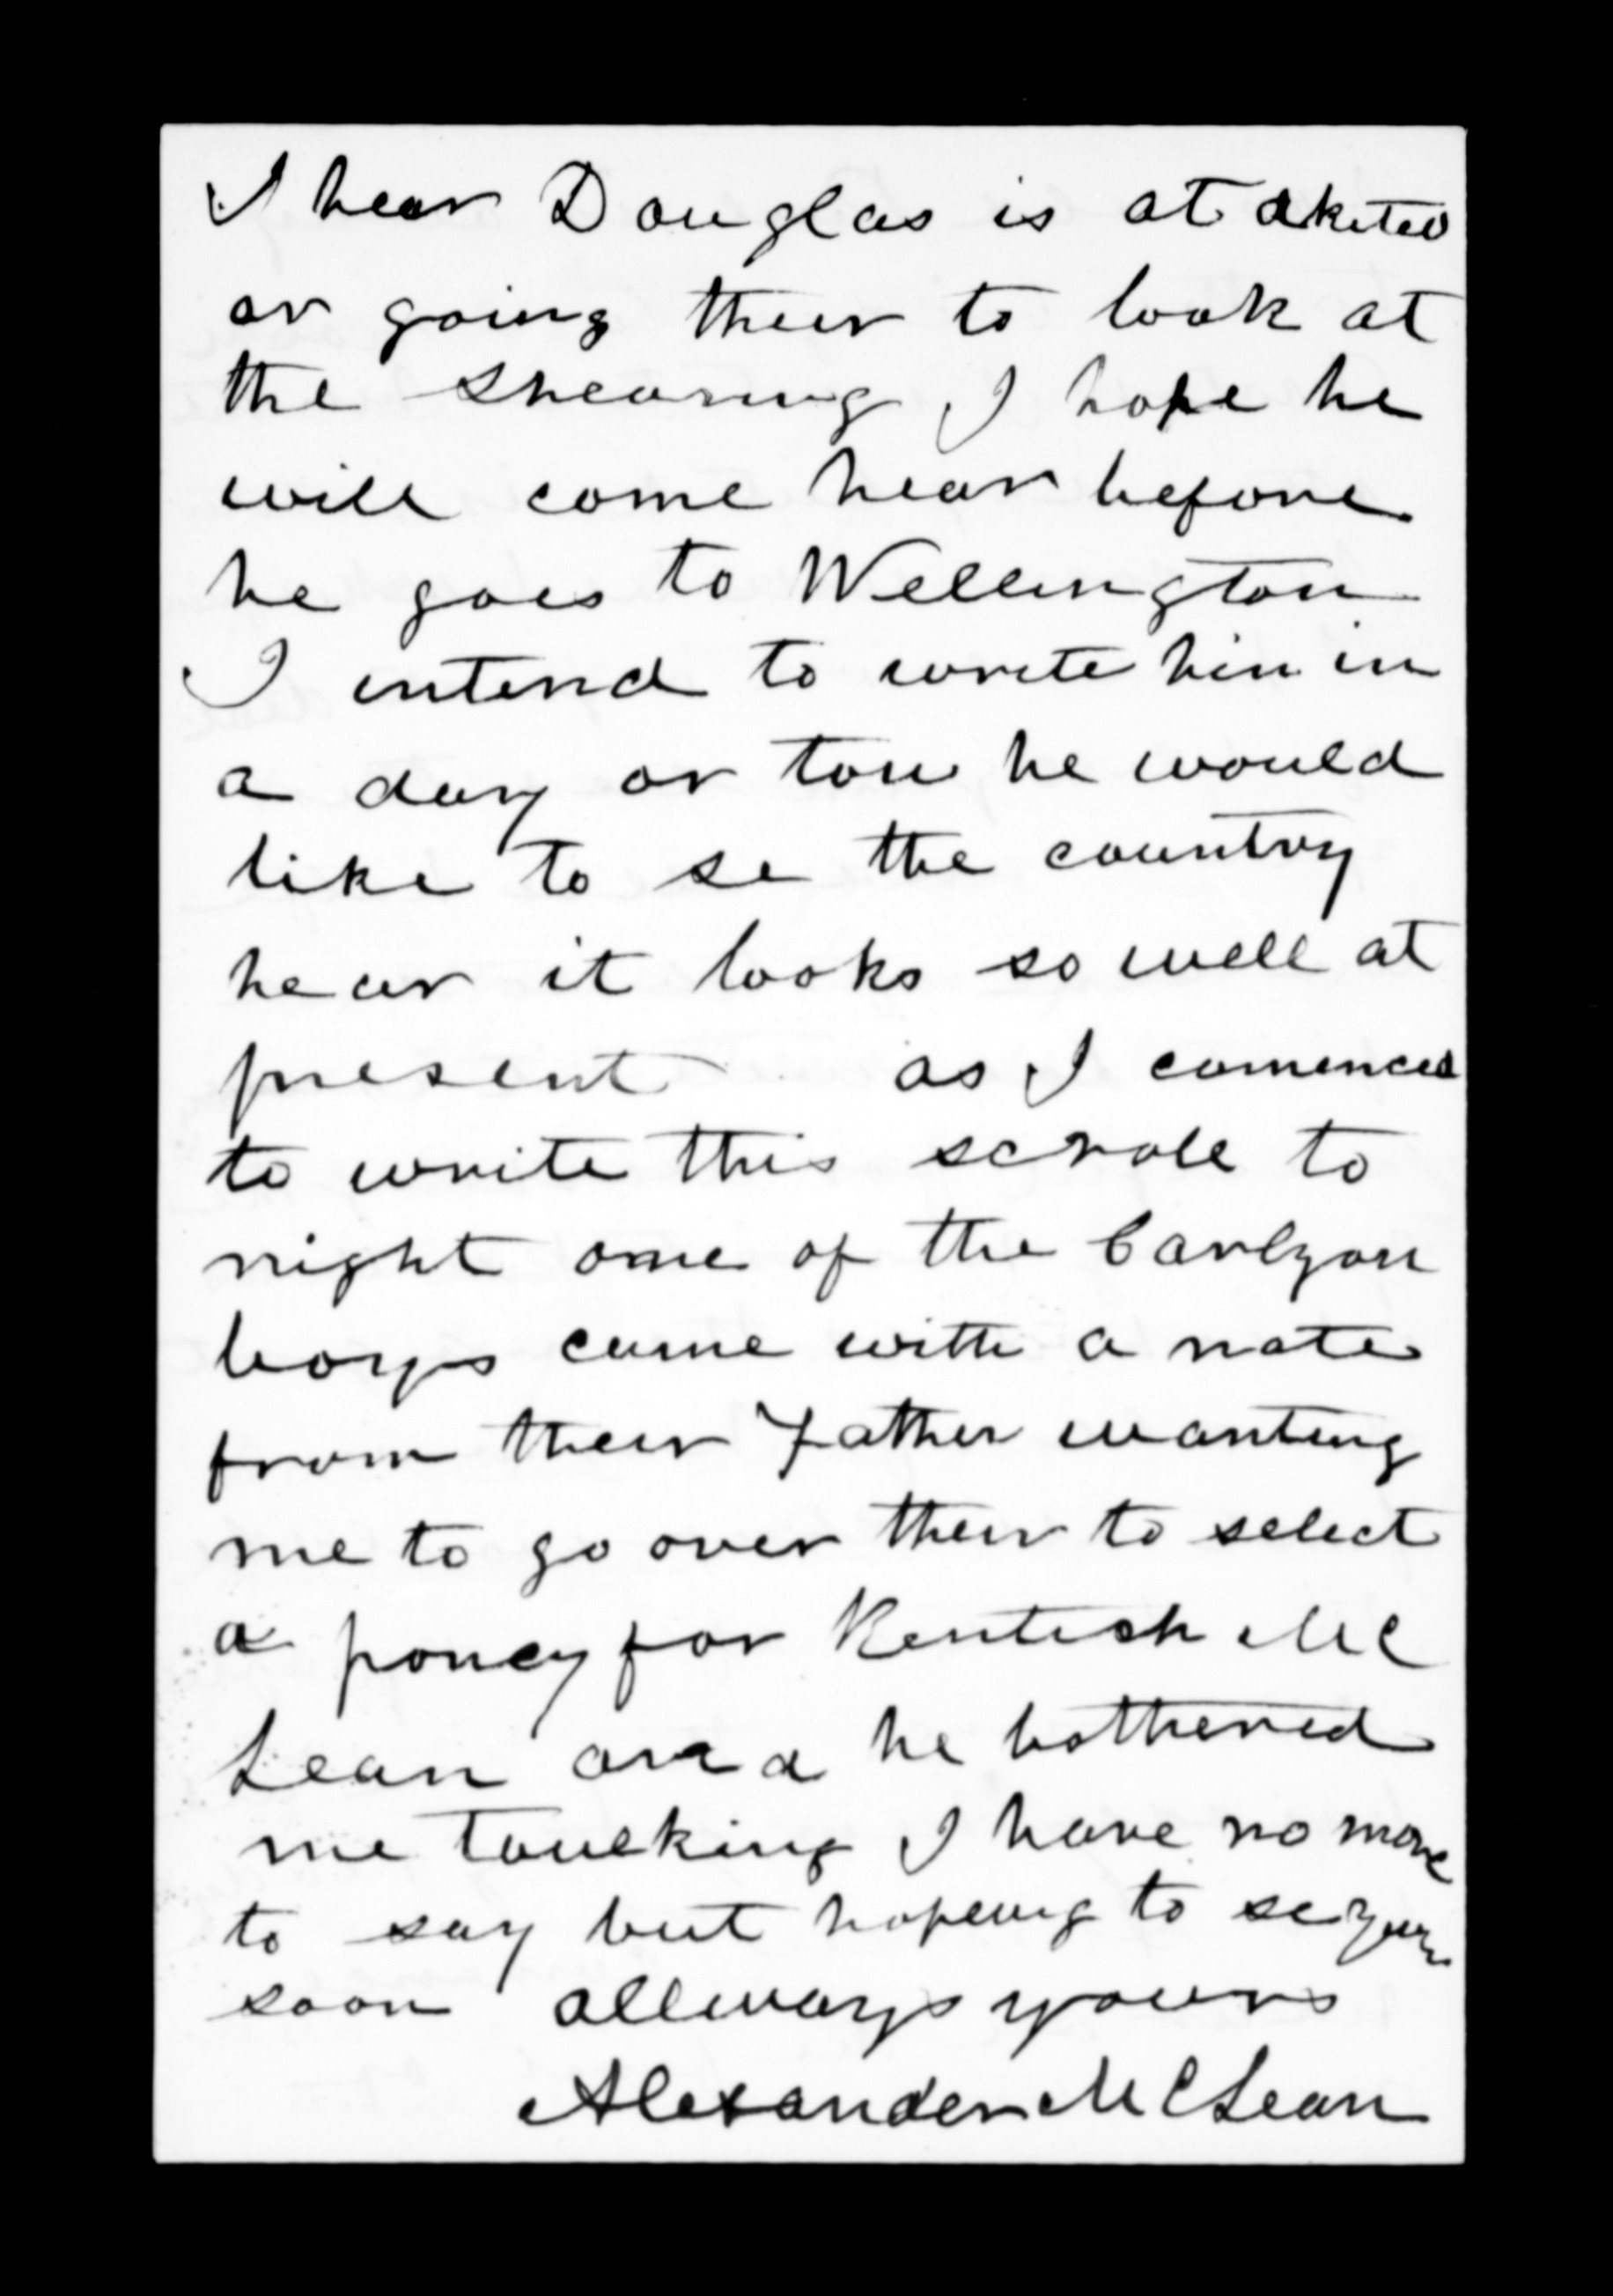 I hear Douglas is at akiteo
or going their to look at
the shearing I hope he
will come hear before
he goes to Wellington
I intend to write him in
a day or tow he would
like to se the country
hear it looks so well at
present as I comenced
to write this scrole to
night one of the Carlyon
boys came with a note
from their Father wanting
me to go over their to select
a poney for Kentish Mc
Lean and he bothered
me taulking I have no more
to say but hopeing to se you
soon allways yours
Alexander McLean